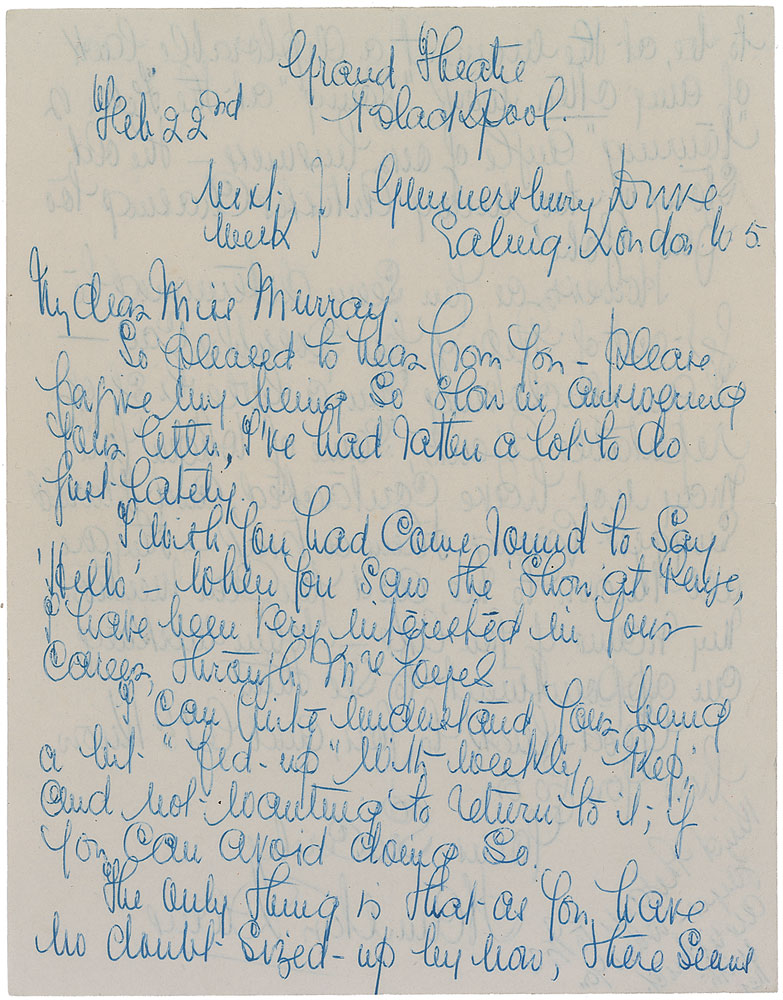 Grand Theatre
Feb 22nd Blackpool.
Next } 1 Gunnersbury Drive,
Week } Ealing. London W 5.
My dear Miss Murray.
So pleased to hear from you – please
forgive my being so slow in answering
your letter, I've had rather a lot to do
just lately,
I wish you had come round to say
'Hello' – when you saw the show, at
I have been very interested in your
career, through Mr
I can quite understand your being
a bit "fed-up" with weekly "Rep",
and not wanting to return to it; if
you can avoid doing so!
The only thing is that as you have
no doubt sized-up by now, there seems